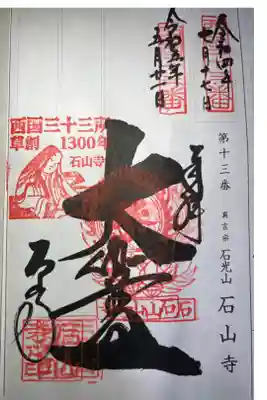 令和四年
七月十七日
令和五年
五月廿一日
奉拝
大悲殿
石山寺
西国三十三所
草創1300年
石山寺
第十三番
真言宗
石光山
石山寺